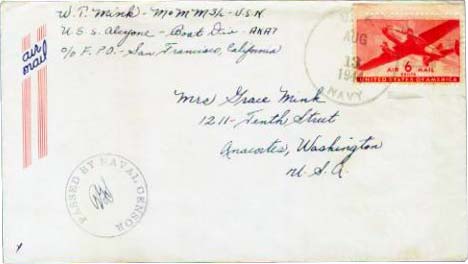 W. P. Mink - MoMM3/c - U.S.N.
U.S.S. Alcyone - Boat Div - AKA7
c/o F.P.O. - San Francisco, California
air mail
U.S.
AUG
13
1944
NAVY
AIR 6 MAIL
CENTS
UNITED STATES OF AMERICA
Mrs Grace Mink
1211 - Tenth Street
Anacortes, Washington
U.S.A.
PASSED BY NAVAL CENSOR